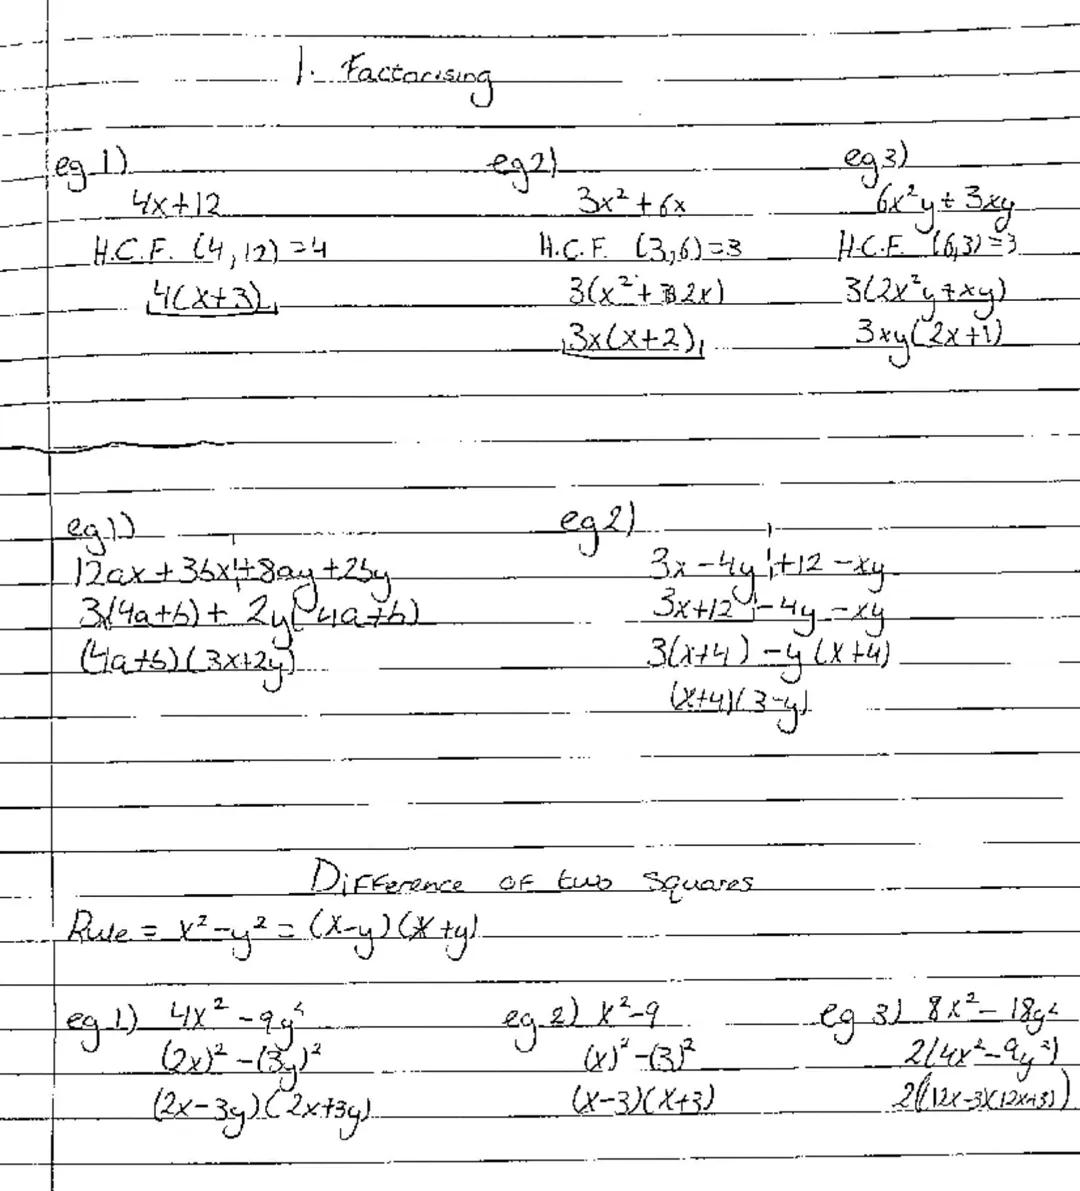 1. Factorising
eg 1)
4x+12
H.C.F. (4,12) =4
4(x+3)
eg2)
3x² + 6x
H.C.F. (3,6)=3
3(x²+ 2x)
3x(x+2)
eg3)
6x²y + 3xy
H.C.F. (6,3)=3
3(2x²y+xy)
3xy(2x+1)
eg1)
12ax + 3bx + 8ay + 2by
3(4a+b) + 2y(4a+b)
(4a+b)(3x+2y)
eg2)
3x-4y+12-xy
3x+12-4y-xy
3(x+4)-y(x+4)
(x+4)(3-y)
Difference of two squares
Rule = x²-y² = (x-y)(x+y)
eg 1) 4x²-9y²
(2x)²-(3y)²
(2x-3y)(2x+3y)
eg 2) x²-9
(x)²-(3)²
(x-3)(x+3)
eg 3) 8x²-18y²
2(4x²-9y²)
2((12x-3)(12x+3))